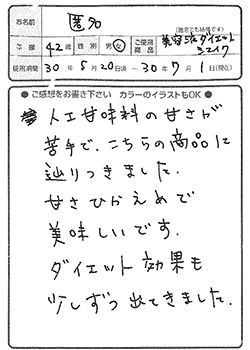 お名前 匿名 (匿名でも結構です)
年齢 42歳 性別 男・女 ご使用商品 美容5倍ダイエットシェイク
使用期間 30年5月20日頃~30年7月1日(現在)
● ご感想をお書き下さい カラーのイラストもOK ●
人工甘味料の甘さが
苦手で、こちらの商品に
辿りつきました.
甘さひかえめで
美味しいです.
ダイエット効果も
少しずつ出てきました.